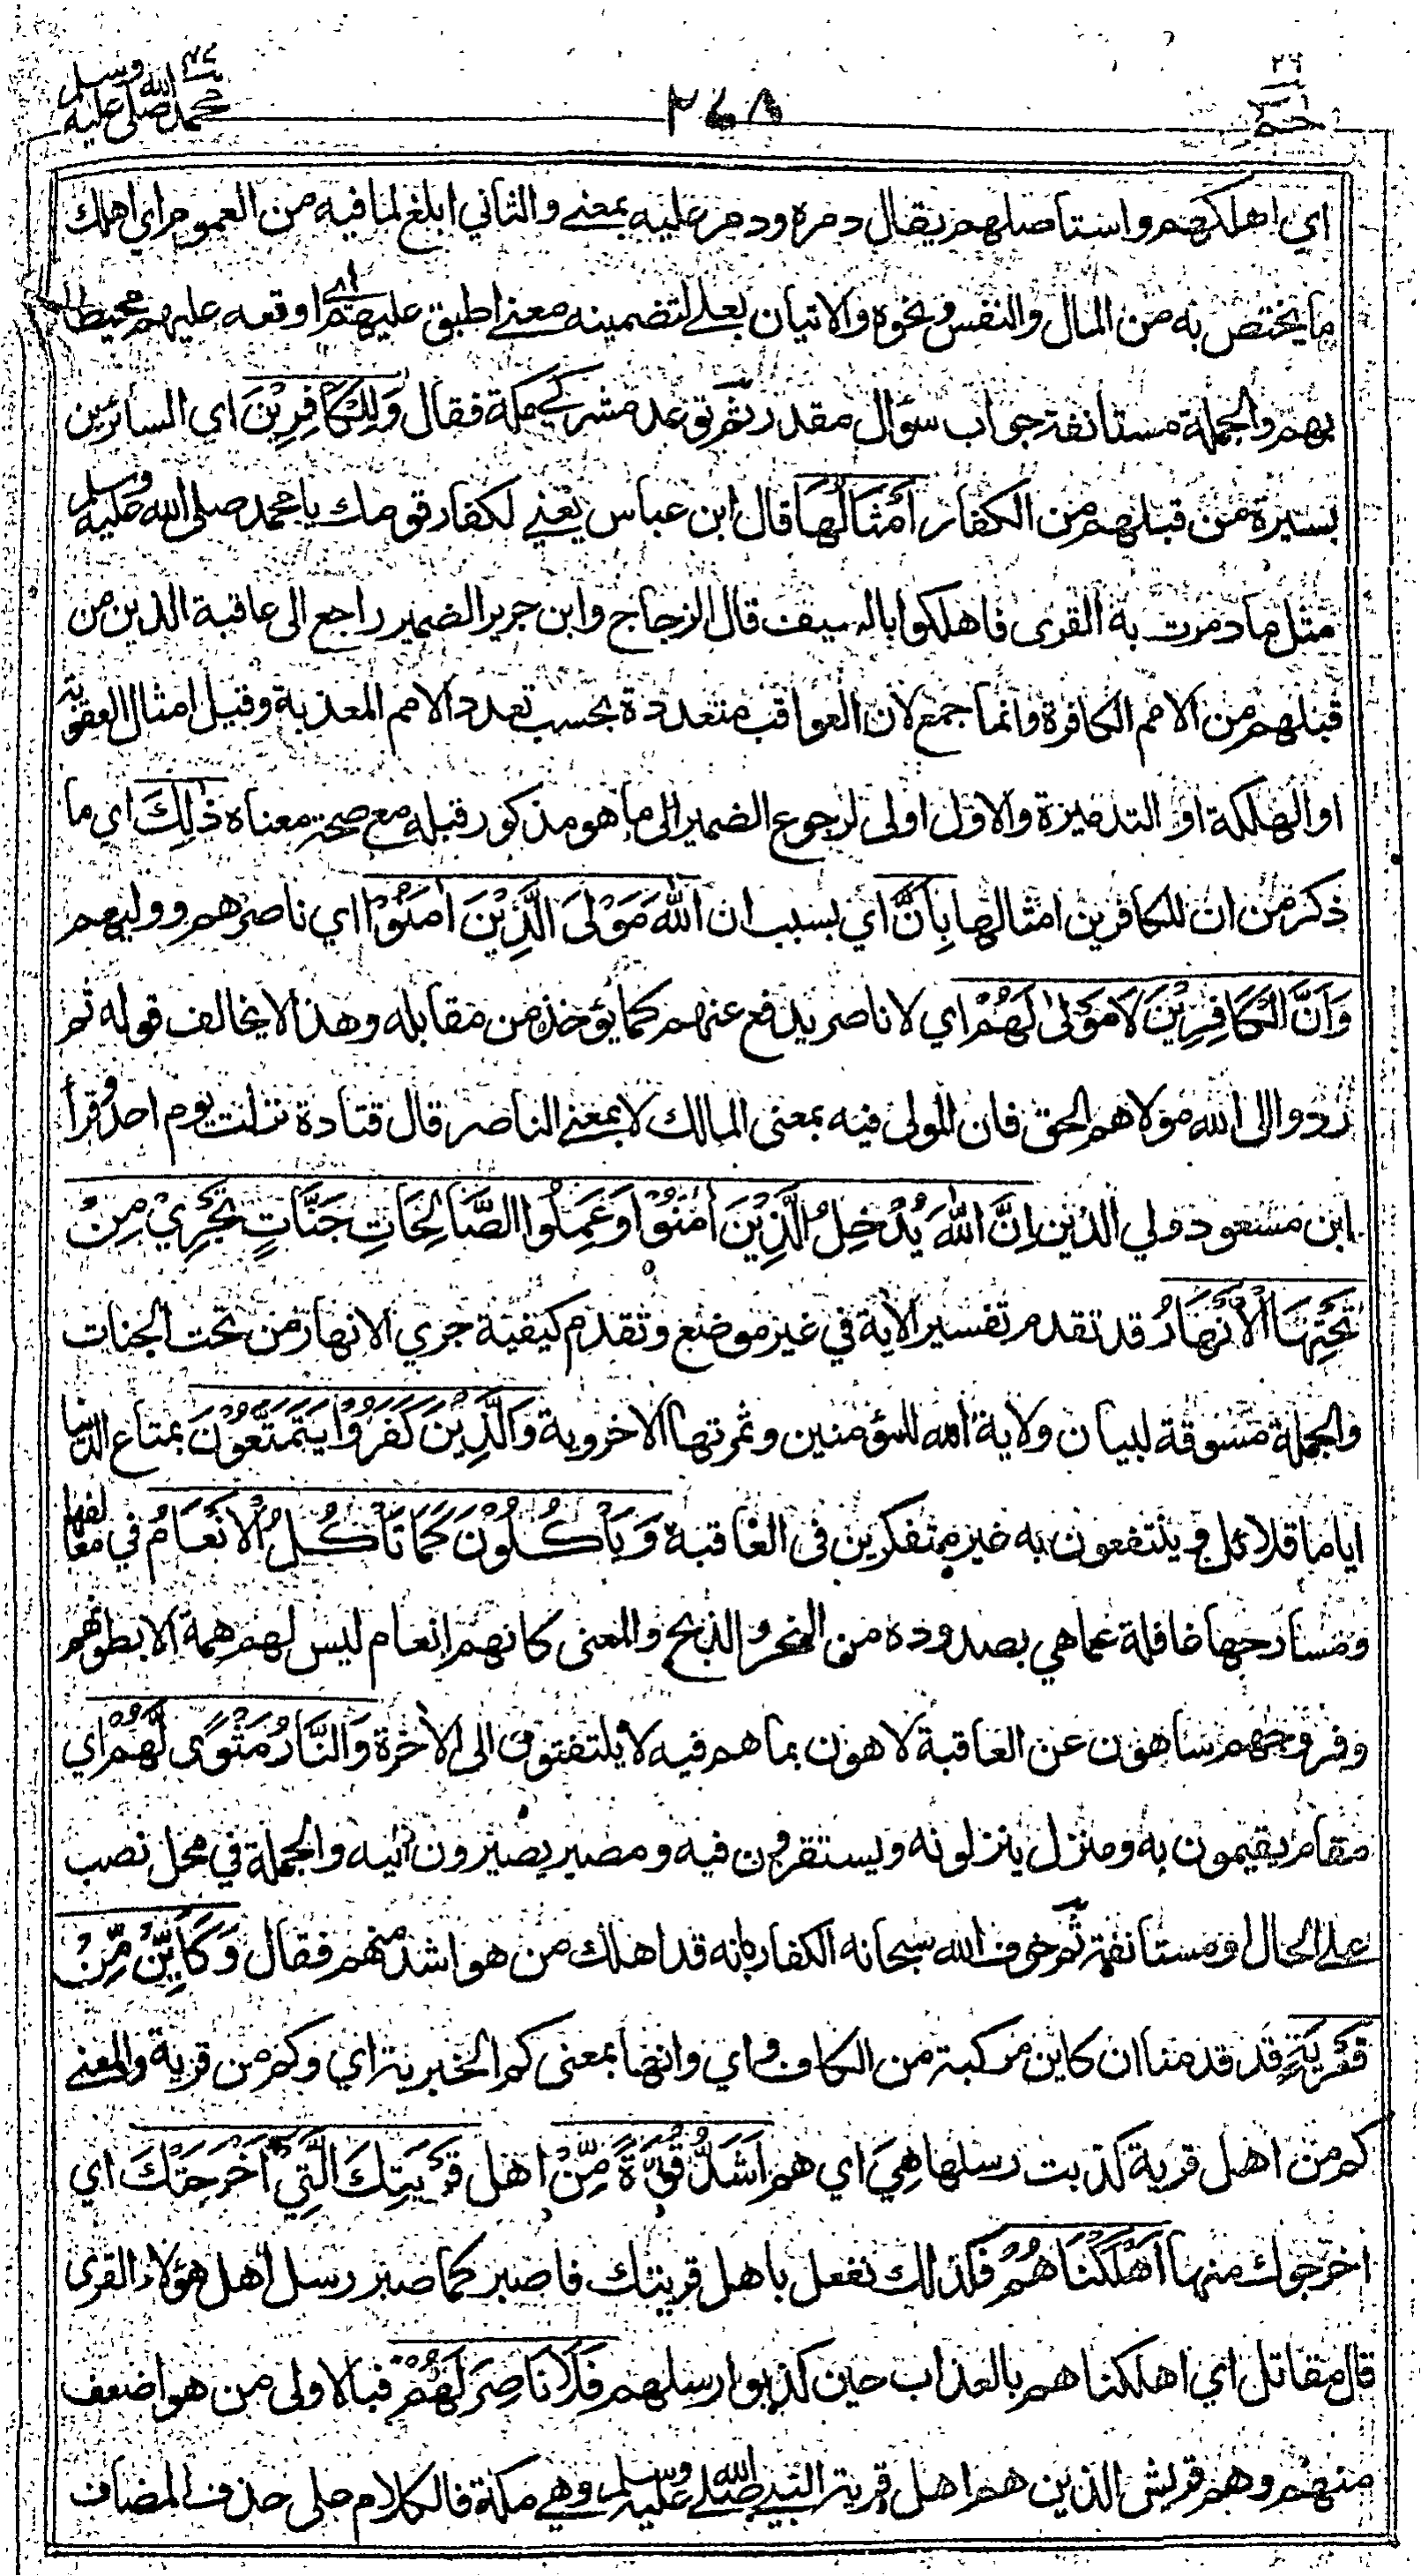 ٢٦ حم
٢٧٨
٤٧ محمد صلى الله عليه وسلم
اي اهلكهم واستاصلهم يقال دمره ودمر عليه بمعنى والثاني ابلغ لما فيه من العموم اي اهلك
ما يختص به من المال والنفس ونحوه والاتيان بعلى لتضمينه معنى اطبق عليهم اي اوقعه عليهم محيطا
بهم والجملة مستانفة جواب سؤال مقدر ثم توعد مشركي مكة فقال وَلِلْكَافِرِيْنَ اي السائرين
بسيرة من قبلهم من الكفار أَمْثَالُهَا قال ابن عباس يعني لكفار قومك يا محمد صلى الله عليه وسلم
مثل ما دمرت به القرى فاهلكوا بالسيف قال الزجاج وابن جرير الضمير راجع الى عاقبة الذين من
قبلهم من الامم الكافرة وانما جمع لان العواقب متعددة بحسب تعدد الامم المعذبة وقيل امثال العقوبة
او الهلكة او التدميرة والاول اولى لرجوع الضمير الى ما هو مذكور قبله مع صحة معناه ذٰلِكَ اي ما
ذكر من ان للكافرين امثالها بِأَنَّ اي بسبب ان اللّٰهَ مَوْلَى الَّذِيْنَ اٰمَنُوْا اي ناصرهم ووليهم
وَأَنَّ الْكَافِرِيْنَ لَا مَوْلٰى لَهُمْ اي لا ناصر يدفع عنهم كما يؤخذ من مقابله وهذا لا يخالف قوله ثم
ردوا الى الله مولاهم الحق فان المولى فيه بمعنى المالك لا بمعنى الناصر قال قتادة نزلت يوم احد وقرأ
ابن مسعود ولي الذين إِنَّ اللّٰهَ يُدْخِلُ الَّذِيْنَ اٰمَنُوْا وَعَمِلُوا الصَّالِحَاتِ جَنَّاتٍ تَجْرِيْ مِنْ
تَحْتِهَا الْأَنْهَارُ قد تقدم تفسير الاية في غير موضع وتقدم كيفية جري الانهار من تحت الجنات
والجملة مسوقة لبيان ولاية الله للمؤمنين وثمرتها الاخروية وَالَّذِيْنَ كَفَرُوْا يَتَمَتَّعُوْنَ بمتاع الدنيا
اياما قلائل وينتفعون به غير متفكرين في العاقبة وَيَأْكُلُوْنَ كَمَا تَأْكُلُ الْأَنْعَامُ في معالفها
ومسارحها غافلة عما هي بصدوده من النحر والذبح والمعنى كانهم انعام ليس لهم همة الا بطونهم
وفروجهم ساهون عن العاقبة لاهون بما هم فيه لا يلتفتون الى الاخرة وَالنَّارُ مَثْوًى لَّهُمْ اي
مقام يقيمون به ومنزل ينزلونه ويستقرون فيه ومصير يصيرون اليه والجملة في محل نصب
على الحال او مستانفة ثم خوف الله سبحانه الكفار بانه قد اهلك من هو اشد منهم فقال وَكَأَيِّنْ مِّنْ
قَرْيَةٍ قد قدمنا ان كاين مركبة من الكاف واي وانها بمعنى كم الخبرية اي وكم من قرية والمعنى
كم من اهل قرية كذبت رسلها هِيَ اي هم أَشَدُّ قُوَّةً مِّنْ اهل قَرْيَتِكَ الَّتِيْ أَخْرَجَتْكَ اي
اخرجوك منها أَهْلَكْنَاهُمْ فكذلك نفعل باهل قريتك فاصبر كما صبر رسل اهل هؤلاء القرى
قال مقاتل اي اهلكناهم بالعذاب حين كذبوا رسلهم فَلَا نَاصِرَ لَهُمْ فبالاولى من هو اضعف
منهم وهم قريش الذين هم اهل قرية النبي صلى الله عليه وسلم وهي مكة فالكلام على حذف المضاف